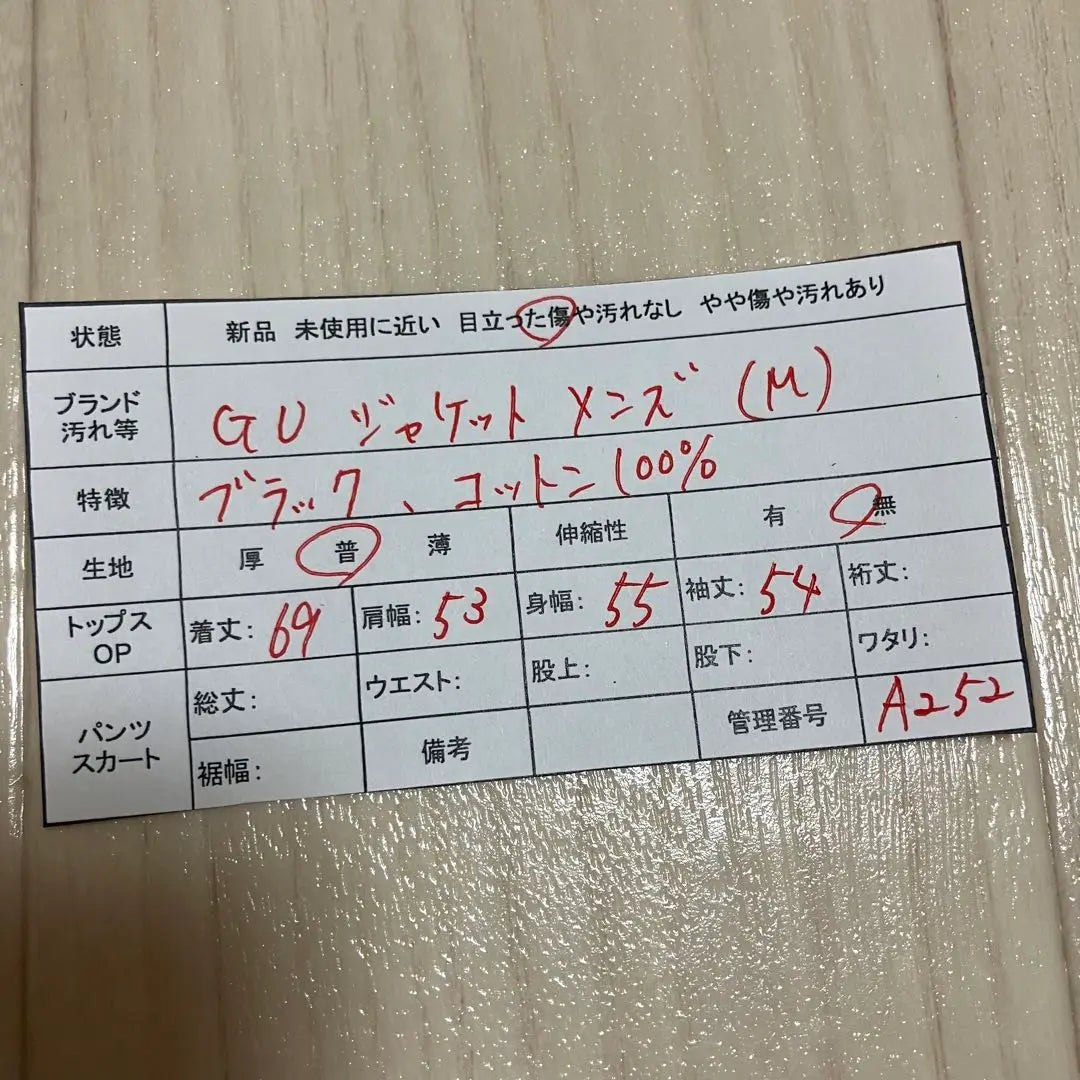 状態 新品 未使用に近い 目立った傷や汚れなし やや傷や汚れあり
ブランド
汚れ等
GU ジャケット メンズ (M)
特徴 ブラック、コットン100%
生地 厚 普 薄 伸縮性 有 無
トップス
OP
着丈: 69 肩幅: 53 身幅: 55 袖丈: 54 裄丈:
パンツ
スカート
総丈: ウエスト: 股上: 股下: ワタリ:
裾幅: 備考 管理番号 A252